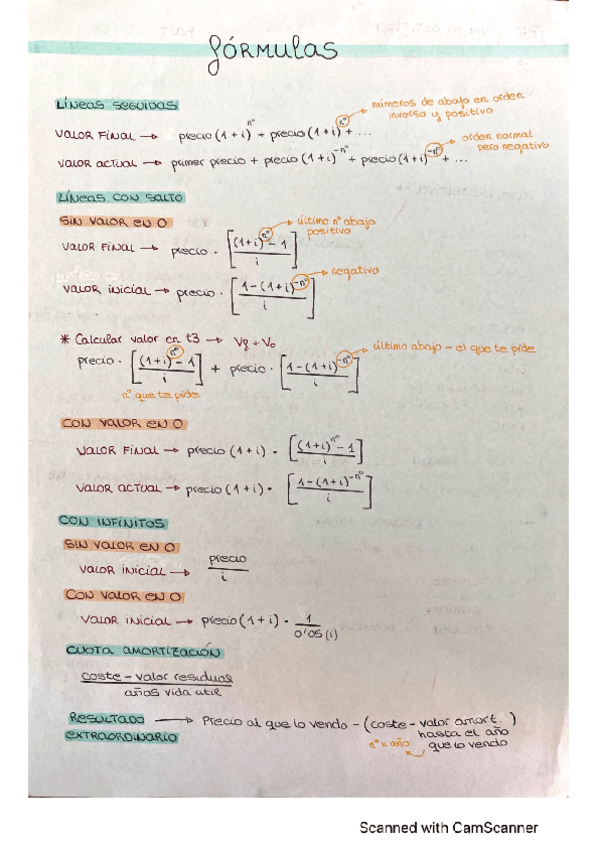 fórmulas
Líneas seguidas
números de abajo en orden
inverso y positivo
VALOR FINAL → precio (1+i)^nº + precio (1+i)^nº + ...
orden normal
pero negativo
VALOR ACTUAL → primer precio + precio (1+i)^-nº + precio (1+i)^-nº + ...
Líneas con salto
SIN VALOR EN 0
último nº abajo
positivo
VALOR FINAL → precio · [((1+i)^nº - 1) / i]
negativo
VALOR INICIAL → precio · [(1-(1+i)^-nº) / i]
* Calcular valor en t3 → Vf + V0
último abajo - el que te pide
precio · [((1+i)^nº - 1) / i] + precio · [(1-(1+i)^-nº) / i]
nº que te pide
CON VALOR EN 0
VALOR FINAL → precio (1+i) · [((1+i)^nº - 1) / i]
VALOR ACTUAL → precio (1+i) · [(1-(1+i)^-nº) / i]
CON INFINITOS
SIN VALOR EN 0
VALOR INICIAL → precio / i
CON VALOR EN 0
VALOR INICIAL → precio (1+i) · 1 / 0'05 (i)
CUOTA AMORTIZACIÓN
coste - valor residual
años vida util
RESULTADO EXTRAORDINARIO → Precio al que lo vendo - (coste - valor amort.)
hasta el año
nº x año que lo vendo
Scanned with CamScanner